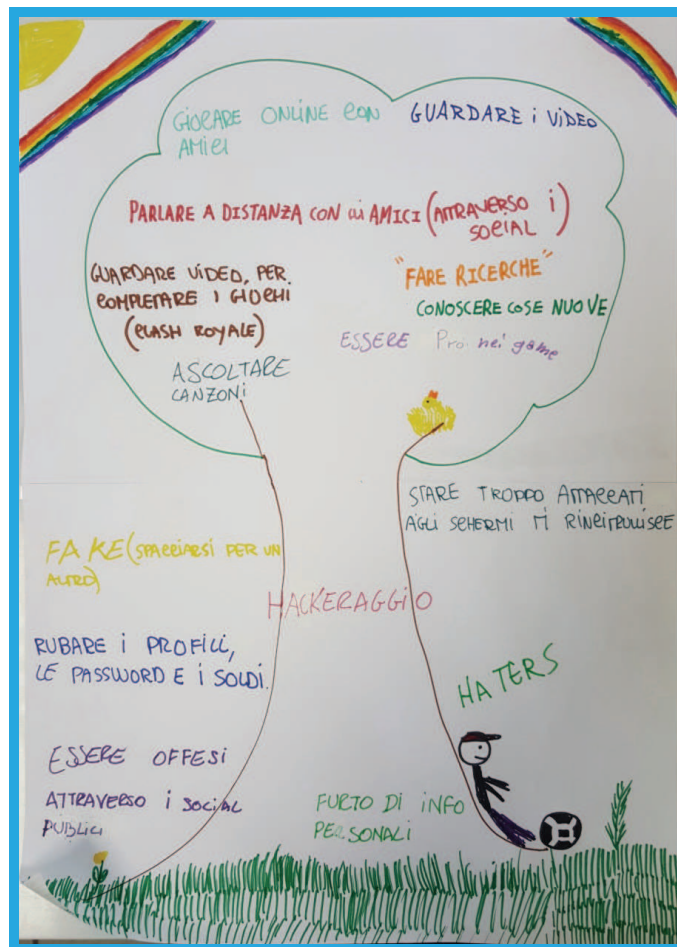 GIOCARE ONLINE CON
AMICI
GUARDARE i ViDEO
PARLARE A DISTANZA CON GLI AMICI (ATTRAVERSO i
SOCIAL)
GUARDARE ViDEO, PER
COMPLETARE I GIOCHI
(CLASH ROYALE)
"FARE RICERCHE"
CONOSCERE COSE NUOVE
ESSERE Pro nei game
ASCOLTARE
CANZONi
STARE TROPPO ATTACCATI
AGLI SCHERMI TI RINCITRULLISCE
FAKE (SPACCIARSI PER UN
ALTRO)
HACKERAGGiO
RUBARE i PROFILI,
LE PASSWORD E i SOLDI.
HATERS
ESSERE OFFESi
ATTRAVERSO i SOCIAL
PUBLICI
FURTO DI iNFO
PERSONALI